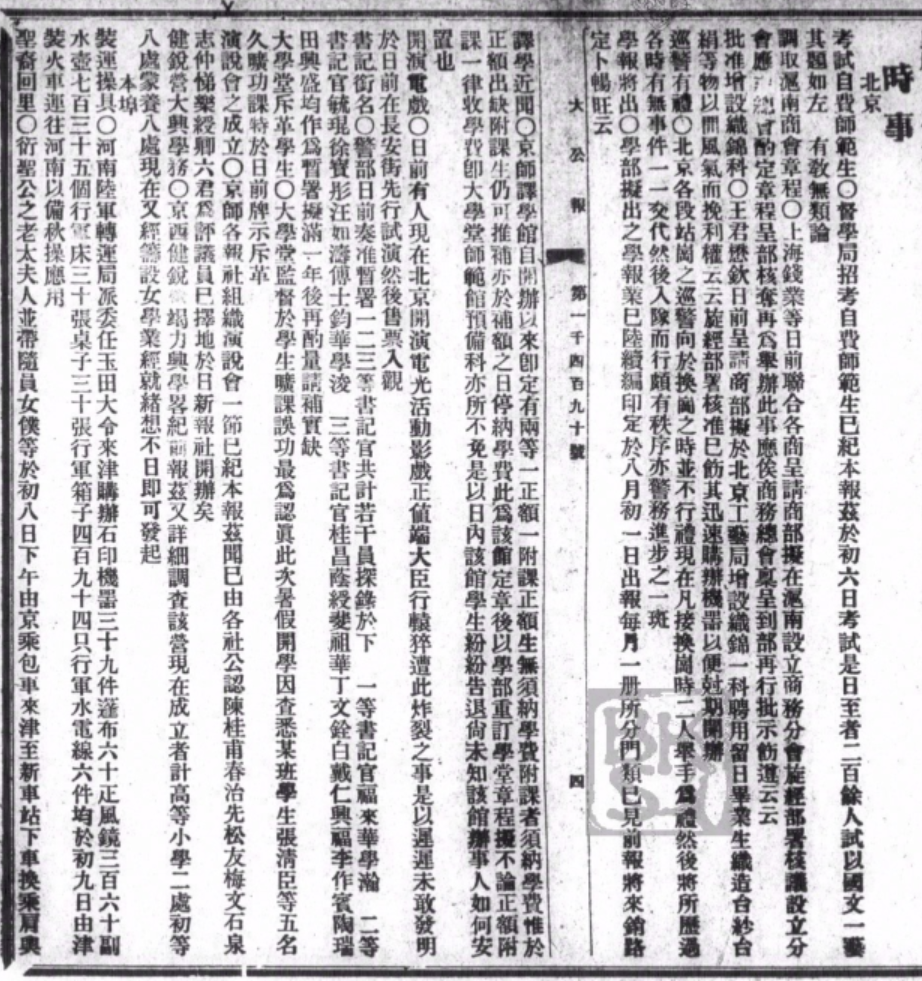 時事
北京
考試自費師範生〇督學局招考自費師範生已紀本報茲於初六日考試是日至者二百餘人試以國文一藝
其題如左　有敎無類論
調取滬南商會章程〇上海錢業等日前聯合各商呈請商部擬在滬南設立商務分會旋經部署核議設立分
會應 總會酌定章程呈部核奪再爲舉辦此事應俟商務總會稟呈到部再行批示飭遵云云
批准增設織錦科〇王君懋欽日前呈請商部擬於北京工藝局增設織錦一科聘用留日畢業生織造台紗台
絹等物以開風氣而挽利權云云旋經部署核准已飭其迅速購辦機器以便尅期開辦
巡警有禮〇北京各段站崗之巡警向於換崗之時並不行禮現在凡接換崗時二人舉手爲禮然後將所歷過
各時有無事件一一交代然後入隊而行頗有秩序亦警務進步之一斑
學報將出〇學部擬出之學報業已陸續編印定於八月初一日出報每月一册所分門類已見前報將來銷路
定卜暢旺云
大公報　第一千四百九十號　四
譯學近聞〇京師譯學館自開辦以來卽定有兩等一正額一附課正額生無須納學費附課者須納學費惟於
正額出缺附課生仍可推補亦於補額之日停納學費此爲該館定章後以學部重訂學堂章程擬不論正額附
課一律收學費卽大學堂師範館預備科亦所不免是以日內該館學生紛紛告退尙未知該館辦事人如何安
置也
開演電戲〇日前有人現在北京開演電光活動影戲正值端大臣行轅猝遭此炸裂之事是以遲遲未敢發明
於日前在長安街先行試演然後售票入觀
書記銜名〇警部日前奏准暫署一二三等書記官共計若干員探錄於下　一等書記官福來華學瀚　二等
書記官毓琨徐寶彤汪如濤傅士鈞華學浚　三等書記官桂昌蔭綬夔祖華丁文銓白戴仁興福李作賓陶瑞
田興盛均作爲暫署擬滿一年後再酌量請補實缺
大學堂斥革學生〇大學堂監督於學生曠課誤功最爲認眞此次暑假開學因查悉某班學生張淸臣等五名
久曠功課特於日前牌示斥革
演說會之成立〇京師各報社組織演說會一節已紀本報茲聞已由各社公認陳桂甫春治先松友梅文石泉
志仲悌樂綬卿六君爲評議員已擇地於日新報社開辦矣
健銳營大興學務〇京西健銳營竭力興學畧紀前報茲又詳細調查該營現在成立者計高等小學二處初等
八處蒙養八處現在又經籌設女學業經就緒想不日卽可發起
本埠
裝運操具〇河南陸軍轉運局派委任玉田大令來津購辦石印機器三十九件蓬布六十疋風鏡三百六十副
水壺七百三十五個行軍床三十張桌子三十張行軍箱子四百九十四只行軍水電線六件均於初九日由津
裝火車運往河南以備秋操應用
聖裔回里〇衍聖公之老太夫人並帶隨員女僕等於初八日下午由京乘包車來津至新車站下車換乘肩輿